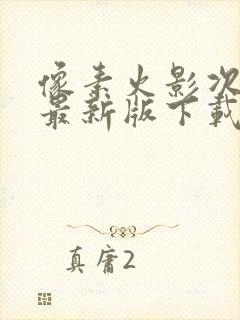 像素火影次
最新版下载
真庸2